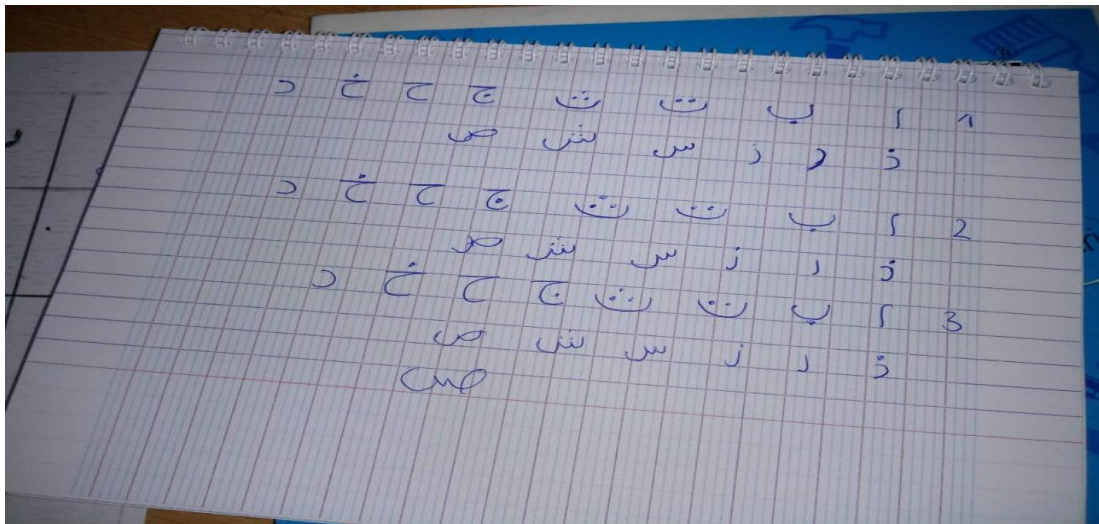 1 ا ب ت ث ج ح خ د
ذ ر ز س ش ص
2 ا ب ت ث ج ح خ د
ذ ر ز س ش ص
3 ا ب ت ث ج ح خ د
ذ ر ز س ش ص
ص